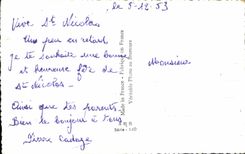 le 5-12.53
Vive St Nicolas
Un peu en retard
Je te souhaite une bonne
et heureuse fête de
St Nicolas
Ainsi que tes parents
Bien le bonjour à tous
Monsieur
Made in France - Fabriqué en France
Véritable Photo au Bromure